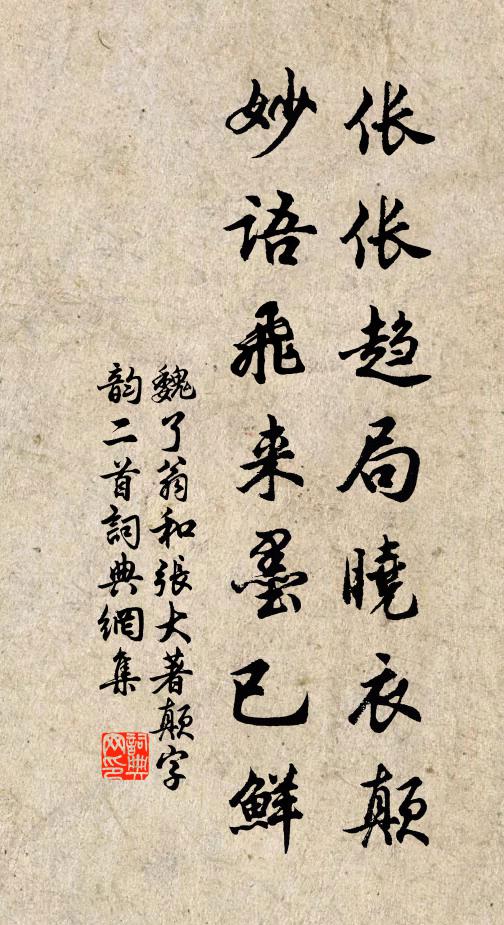 伥伥趋局曉衣颠
妙语飛来墨已鲜
魏了翁和張大著颠字
韵二首詞典網集
詞典网印